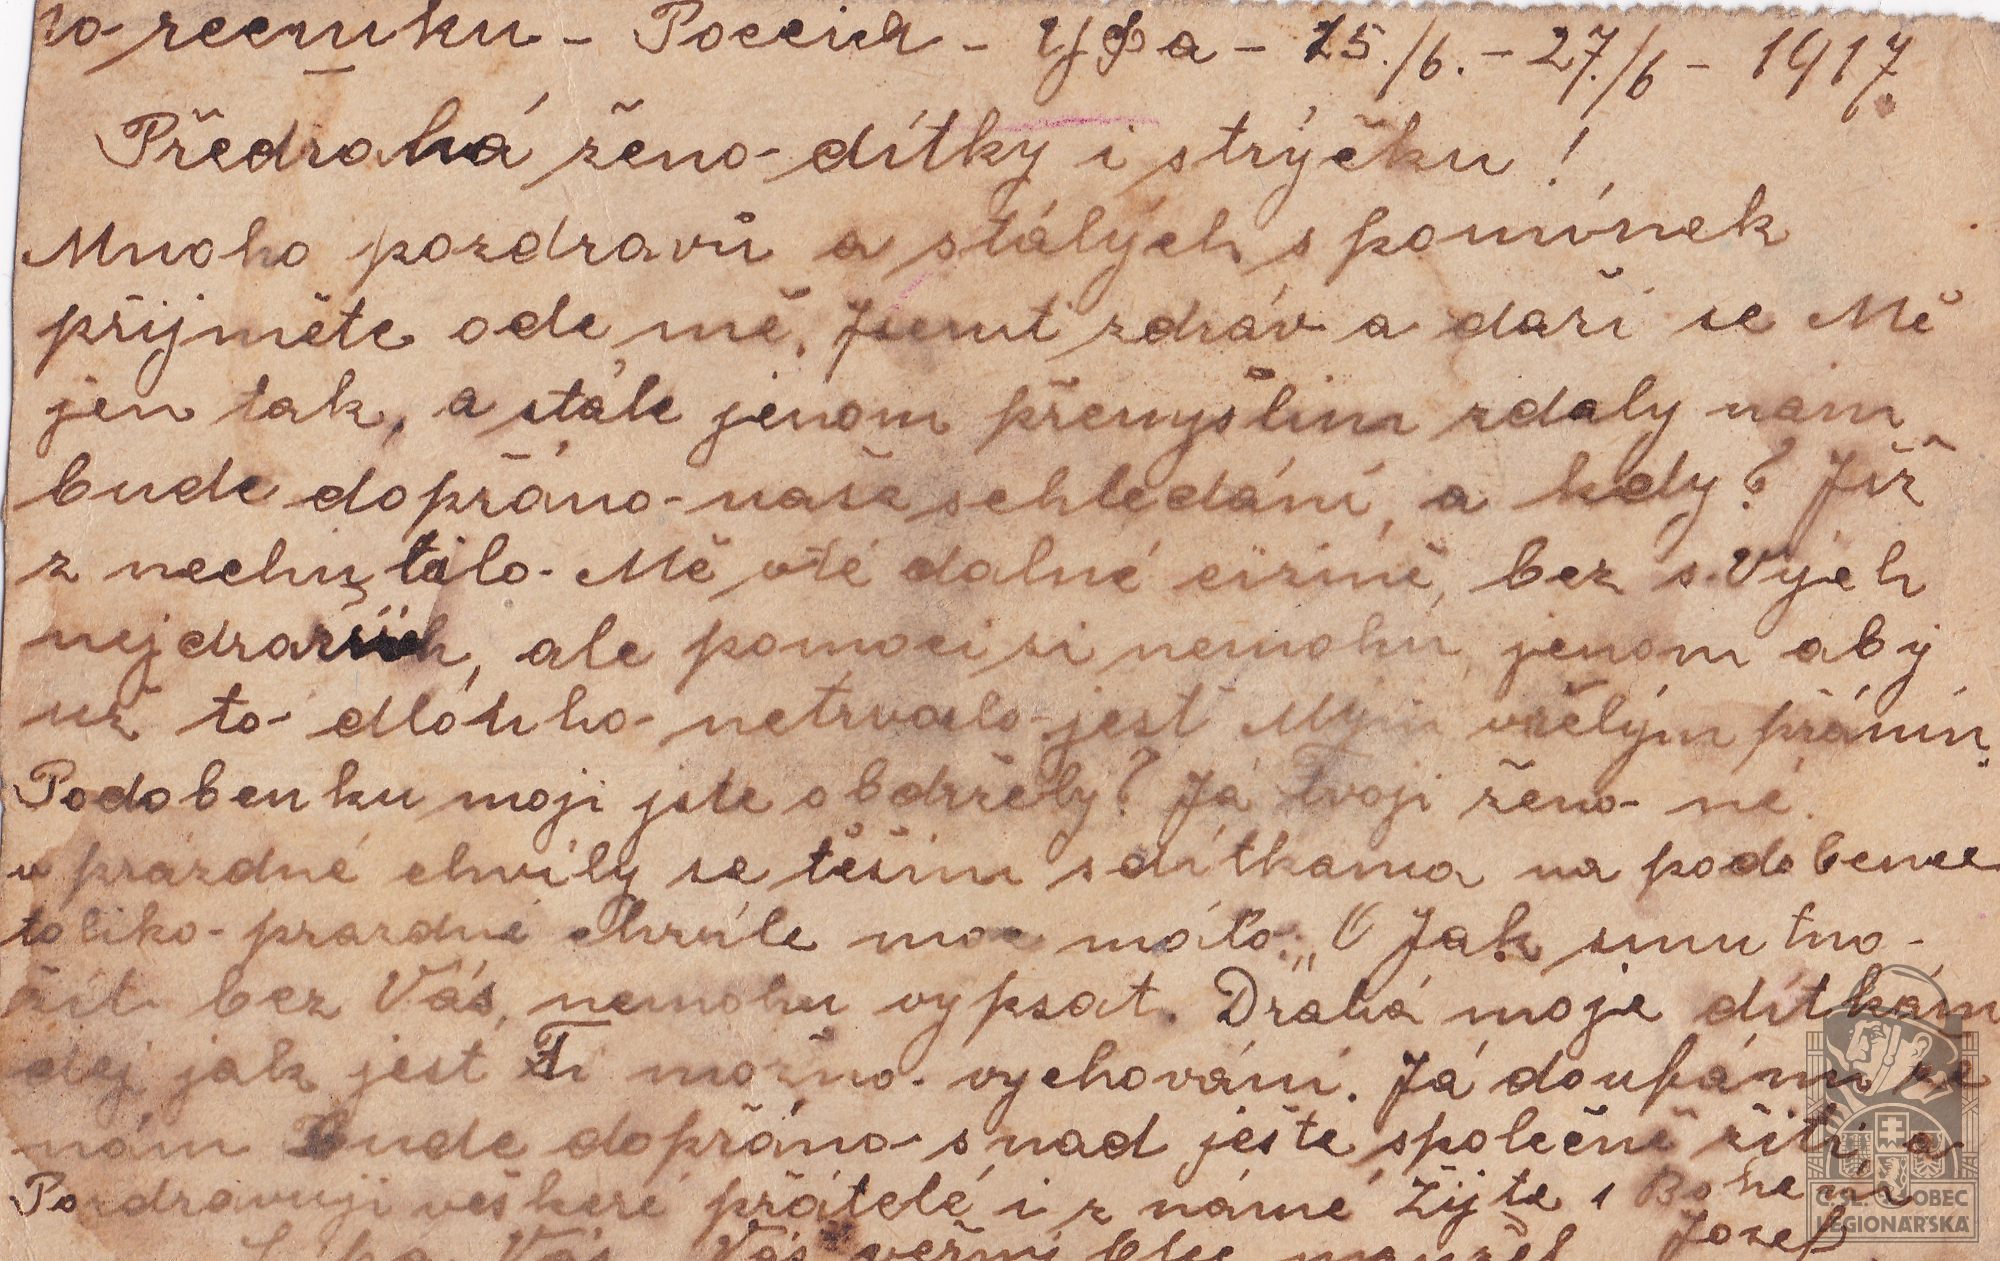 Россия - Уфа - 25./6. - 27./6 - 1917.
Předrahá ženo - dítky i strýčku !
Mnoho pozdravů a stálých spomínek
přijměte ode mě. Jsemť zdráv a daří se Mě
jen tak, a stále jenom přemyšlim zdaly nám
bude dopřáno - naše schledání, a kdy? Již
z nechutilo - Mě vté dalné cizině, bez svých
nejdražších, ale pomoci si nemohu, jenom aby
už to - dlóuho - netrvalo - jest Mým vřelým přáním,
Podobenku moji jste obdržely? Já Tvoji ženo - né.
v prázdné chvíly se těšim s dítkama na podobence
toliko - prazdné chvíle moc máło. „ Ó Jak smutno -
žít bez Vás, nemohu vypsat. Drahá moje dítkám
dej jak jest Ti možno - vychování. Já doufám že
nám bude dopřáno - snad ješte společně žíti, a
Pozdravuji veškeré přátelé i známé Žijte s Bohem
Vás Vás věrný manžel Josef
Č.S. OBEC
LEGIONÁŘSKÁ